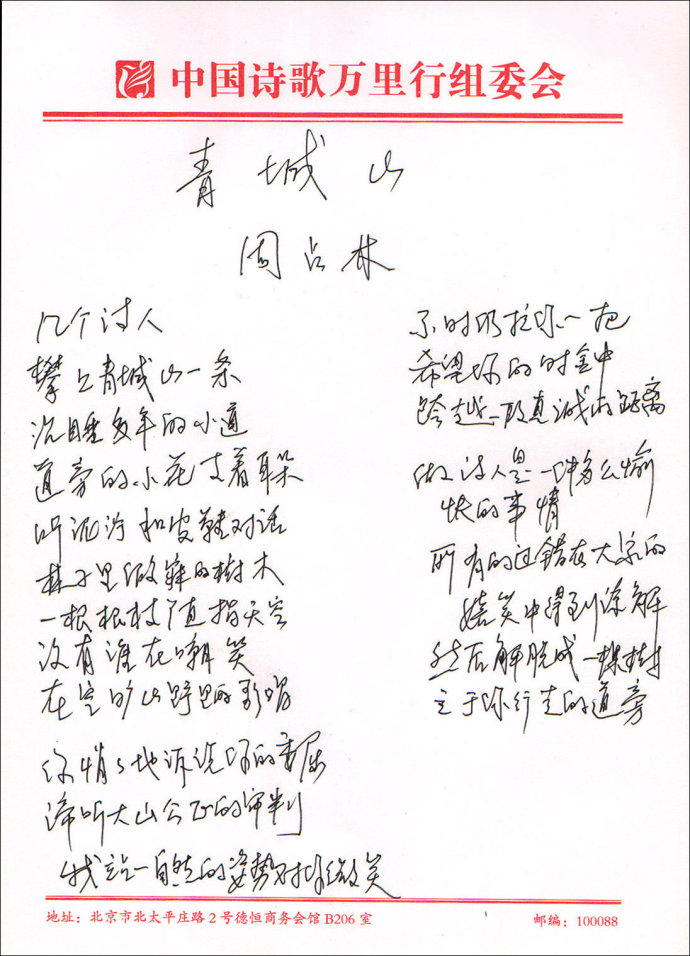 中国诗歌万里行组委会
青城山
周占林
几个诗人
攀上青城山一条
沉睡多年的小道
道旁的小花支着耳朵
听泥泞和皮鞋对话
林子里的樹木
一根根枝直指天空
没有谁在嘲笑
在空旷山野里的歌唱
你悄悄地诉说你的委屈
谛听大山公正的审判
我站一自然的姿势对你微笑
不时的拉你一把
希望你的时金中
跨越一段真诚的距离
做诗人是一种多么愉
快的事情
所有的过错在大家的
嬉笑中得到谅解
然后解脱成一棵樹
立于你行走的道旁
地址：北京市北太平庄路2号德恒商务会馆B206室
邮编：100088